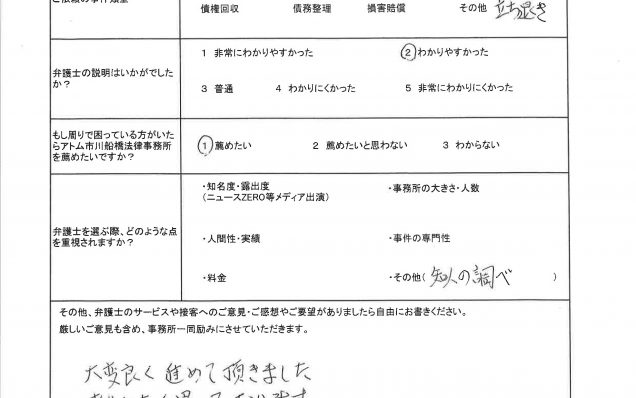 ご依頼の事件類型
債権回収 債務整理 損害賠償 その他 立ち退き
弁護士の説明はいかがでしたか？
1 非常にわかりやすかった ②わかりやすかった
3 普通 4 わかりにくかった 5 非常にわかりにくかった
もし周りで困っている方がいたらアトム市川船橋法律事務所を薦めたいですか？
①薦めたい 2 薦めたいと思わない 3 わからない
弁護士を選ぶ際、どのような点を重視されますか？
・知名度・露出度 ・事務所の大きさ・人数
（ニュースZERO等メディア出演）
・人間性・実績 ・事件の専門性
・料金 ・その他（ 知人の調べ ）
その他、弁護士のサービスや接客へのご意見・ご感想やご要望がありましたら自由にお書きください。
厳しいご意見も含め、事務所一同励みにさせていただきます。
大変良く進めて頂きました